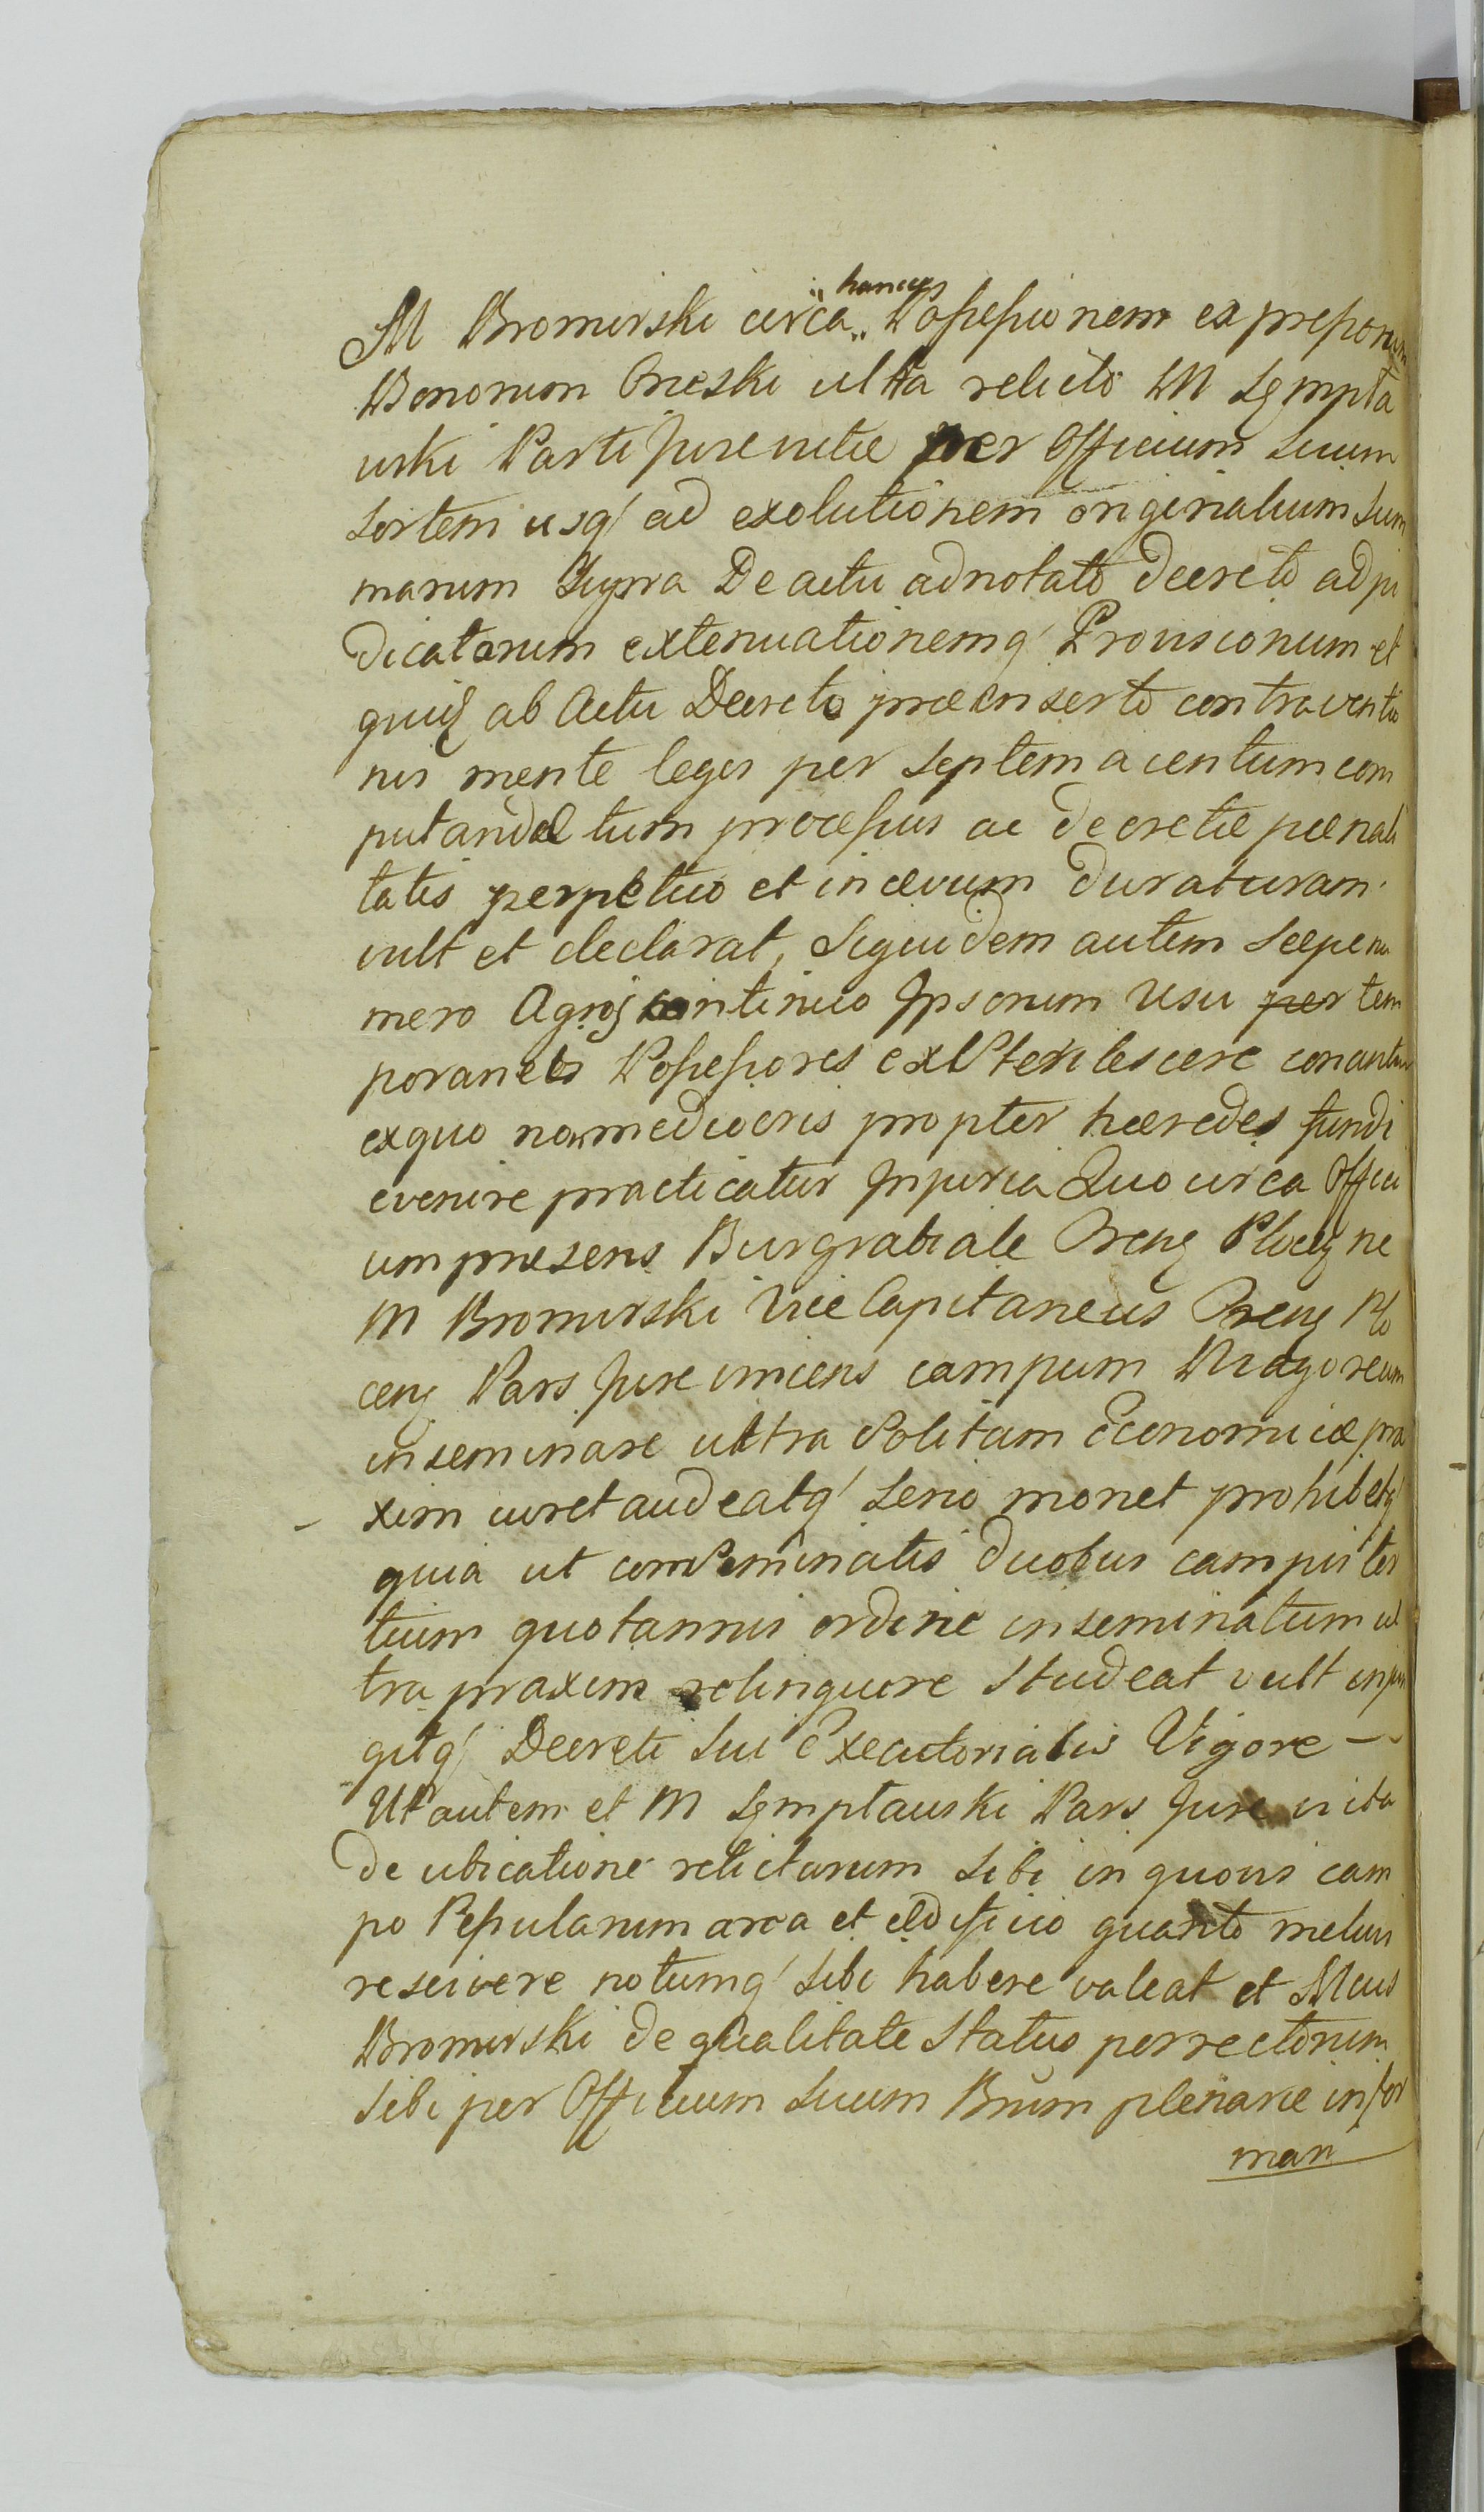 hancce
M Bromirski circa Possessionem ex pressorum
Bonorum Orieski ultra relicto M Szmpła
wski Parti Jurevictæ per Officium Suum
Sortem usq ad exolutionem originalium Sum
marum Supra De actu adnotato decreto adju
dicatarum extenuationemq Provisionum et
quiq ab Actu Decreto præinserto contraventio
nis mente legis per Septem a centum com
putandæ tum processus ac decretæ pænali
tatis perpetuo et in ævum duraturam
vult et declarat, Siquidem autem Sæpenu
mero Agros continuo Ipsorum Usu per tem
poraneos Possessores exsterilescere conantur
ex quo non mediocris propter hæredes fundi
evenire practicatur Injuria Quocirca Offici
um præsens Burgrabiale Breng Plocen ne
M Bromirski Vice Capitaneus Breng Plo
cen Pars Jure vincens campum Ugoreum
inseminare ultra Solitam Economicæ pra
xim curet audeatq Serio monet prohibetq
quia ut conseminatis duobus campis ter
tium quotannis ordine inseminatum ul
tra praxim relinquere Studeat vult injun
gitq Decreti Sui Executorialis Vigore —
Ut autem et M Szmpławski Pars Jure victa
de ubicatione relictarum Sibi in quovis cam
po Pessularum area et ædificio quanto melius
rescivere notumq Sibi habere valeat et Mcus
Bromirski de qualitate Status perrectorum
Sibi per Officium Suum Brum plenarie infor
man